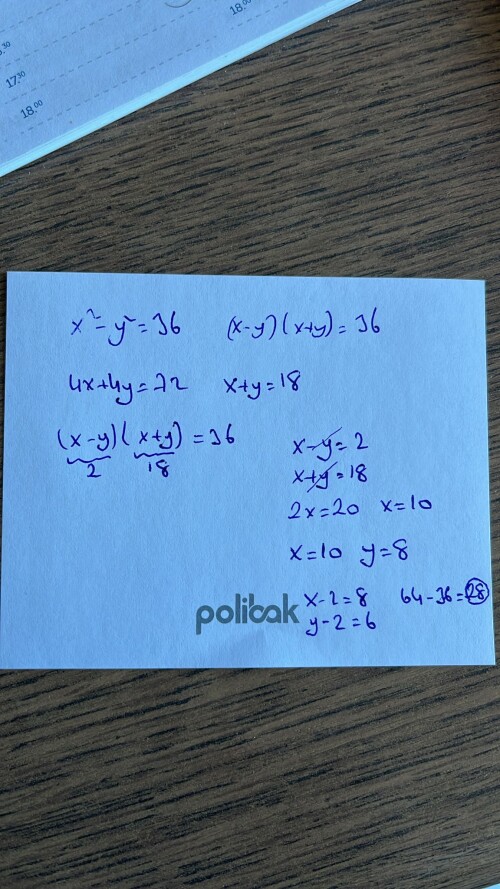 17.30
18.00
18.00
x² - y² = 36 (x-y)(x+y) = 36
4x+4y=72 x+y=18
(x-y)(x+y) = 36
2 18
x-y=2
x+y=18
2x=20 x=10
x=10 y=8
x-2=8 64-36=28
y-2=6
polibak